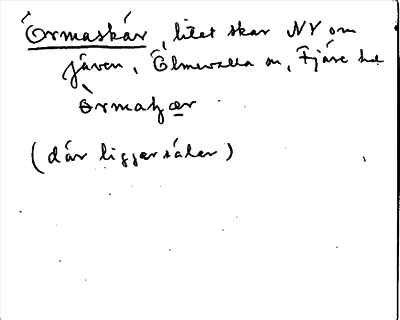 Ormaskär, litet skär NV om
jáven, Ölmevalla sn, Fjäre hd
òrmaʃær
(där ligger sälar)